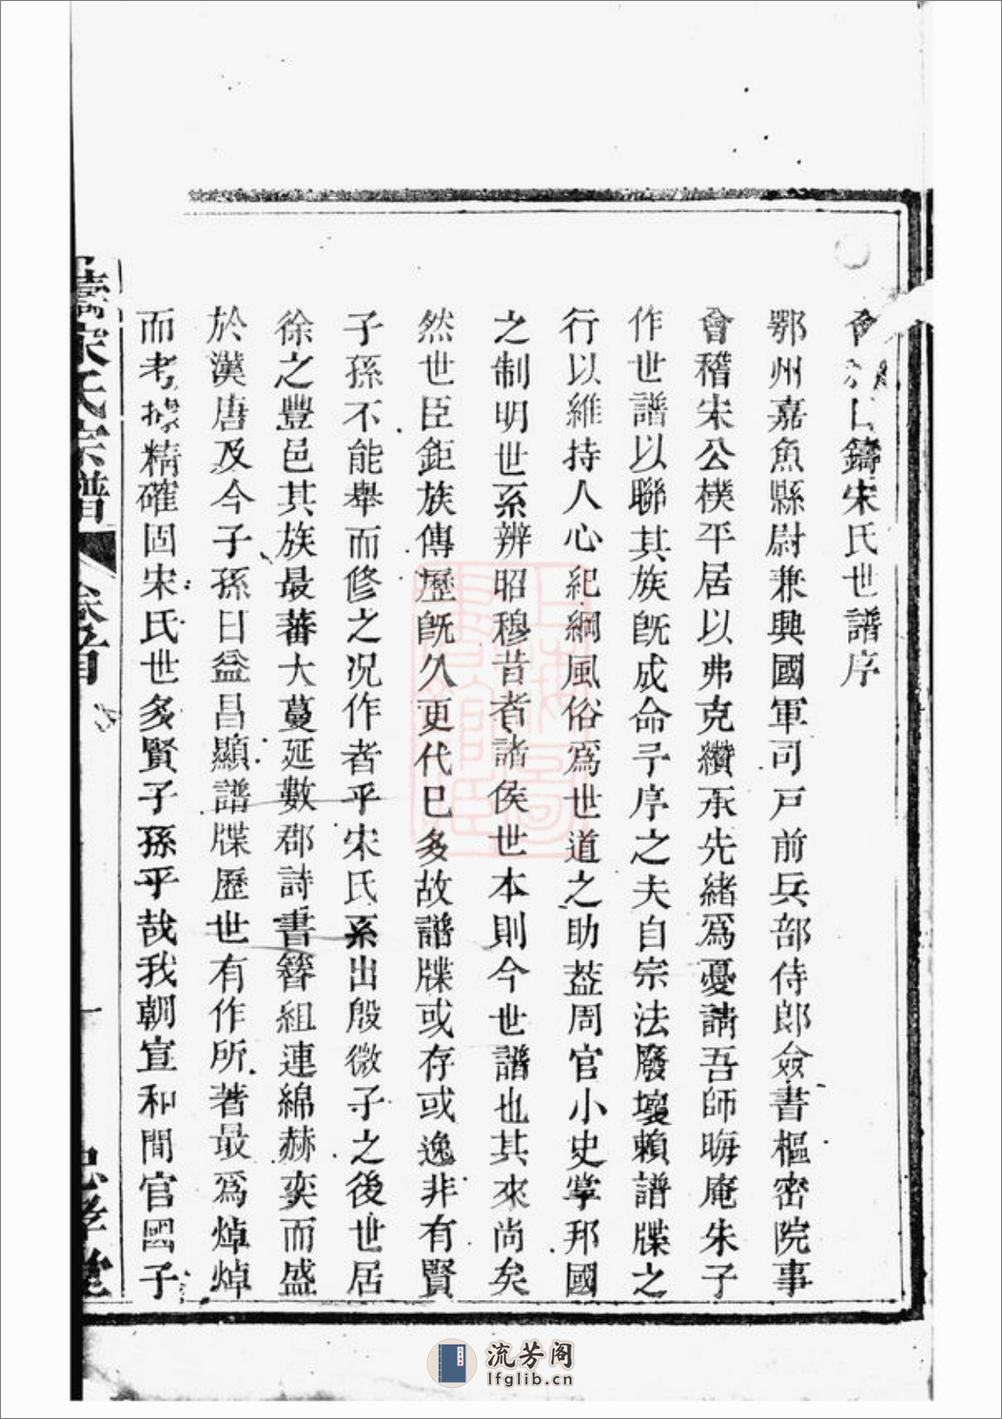 會稽日鑄宋氏世譜序
鄂州嘉魚縣尉兼興國軍司戸前兵部侍郎僉書樞密院事
會稽宋公樸平居以弗克纘承先緒爲憂請吾師晦庵朱子
作世譜以聯其族旣成命予序之夫自宗法廢壞賴譜牒之
行以維持人心紀綱風俗爲世道之助葢周官小史掌邦國
之制明世系辨昭穆昔者諸侯世本則今世譜也其來尚矣
然世臣鉅族傳歷旣久更代已多故譜牒或存或逸非有賢
子孫不能舉而修之况作者乎宋氏系出殷微子之後世居
徐之豐邑其族最蕃大蔓延數郡詩書簪組連綿赫奕而盛
於漢唐及今子孫日益昌顯譜牒歷世有作所著最爲焯焯
而考據精確固宋氏世多賢子孫乎哉我朝宣和間官國子
宋氏宗譜
卷首
一
忠孝堂
流芳阁
lfglib.cn